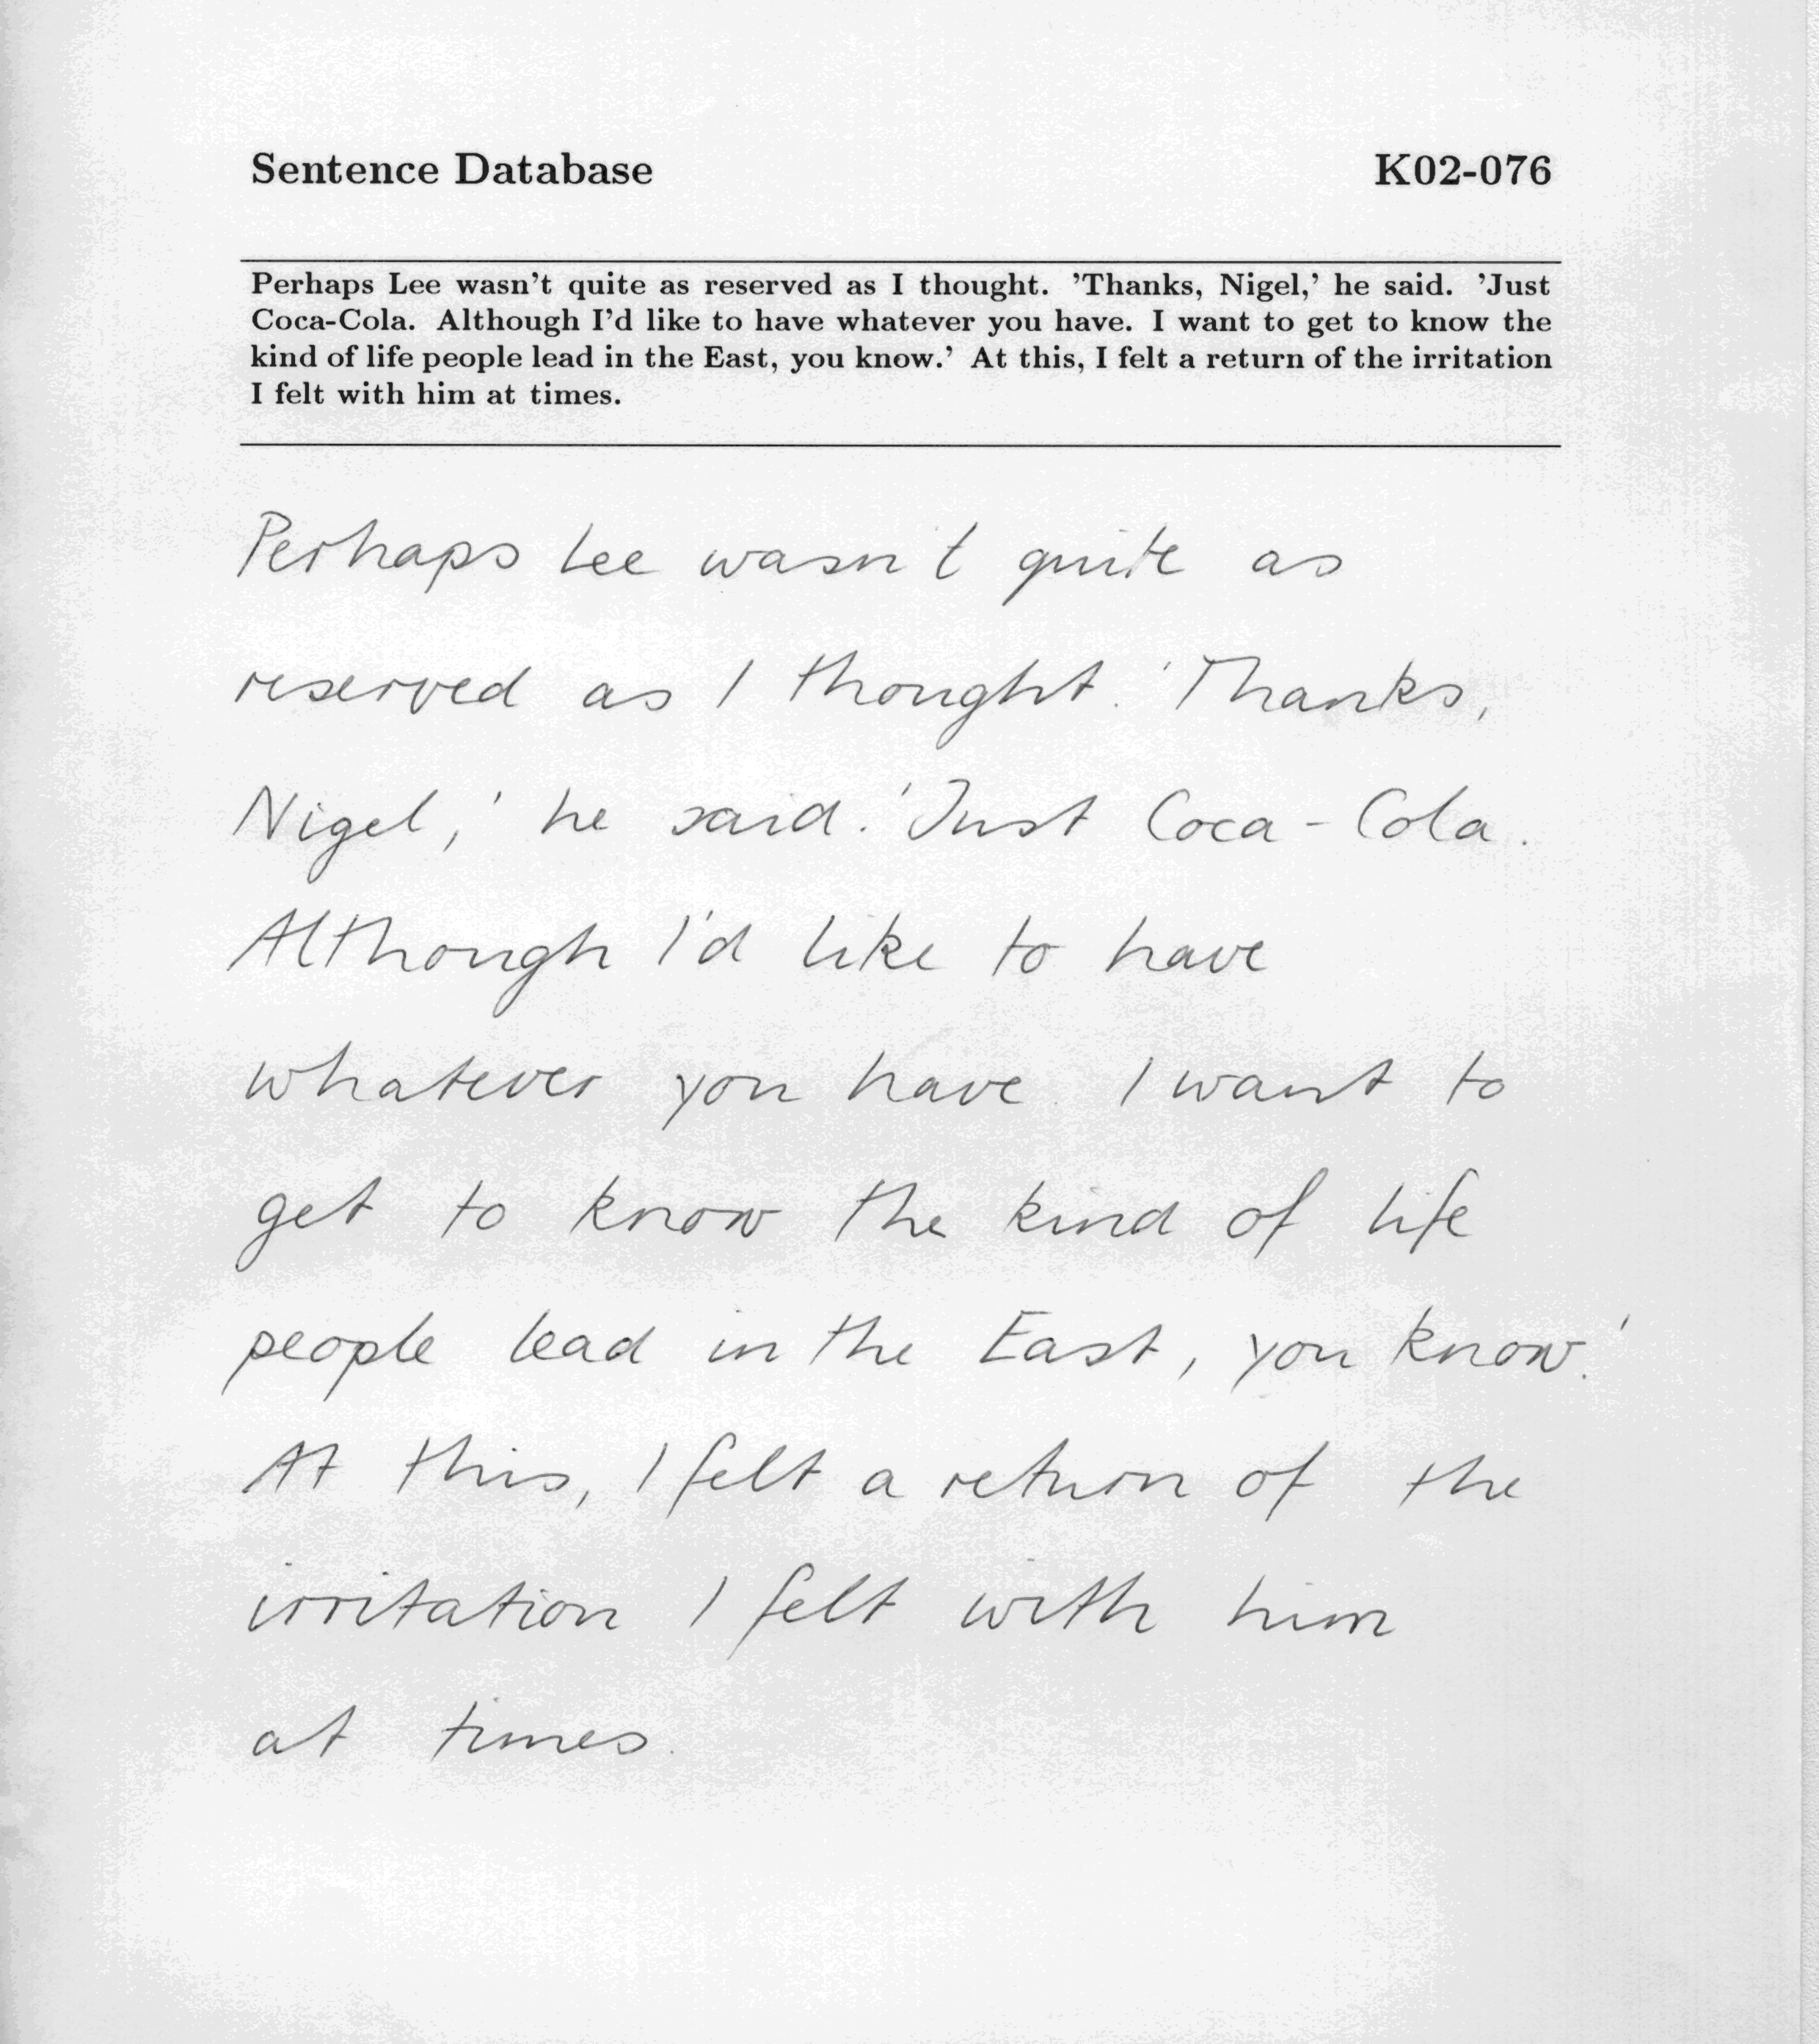 Sentence Database K02-076
Perhaps Lee wasn't quite as reserved as I thought. 'Thanks, Nigel,' he said. 'Just
Coca-Cola. Although I'd like to have whatever you have. I want to get to know the
kind of life people lead in the East, you know.' At this, I felt a return of the irritation
I felt with him at times.
Perhaps Lee wasn't quite as
reserved as I thought. 'Thanks,
Nigel,' he said. 'Just Coca-Cola.
Although I'd like to have
whatever you have. I want to
get to know the kind of life
people lead in the East, you know.'
At this, I felt a return of the
irritation I felt with him
at times.